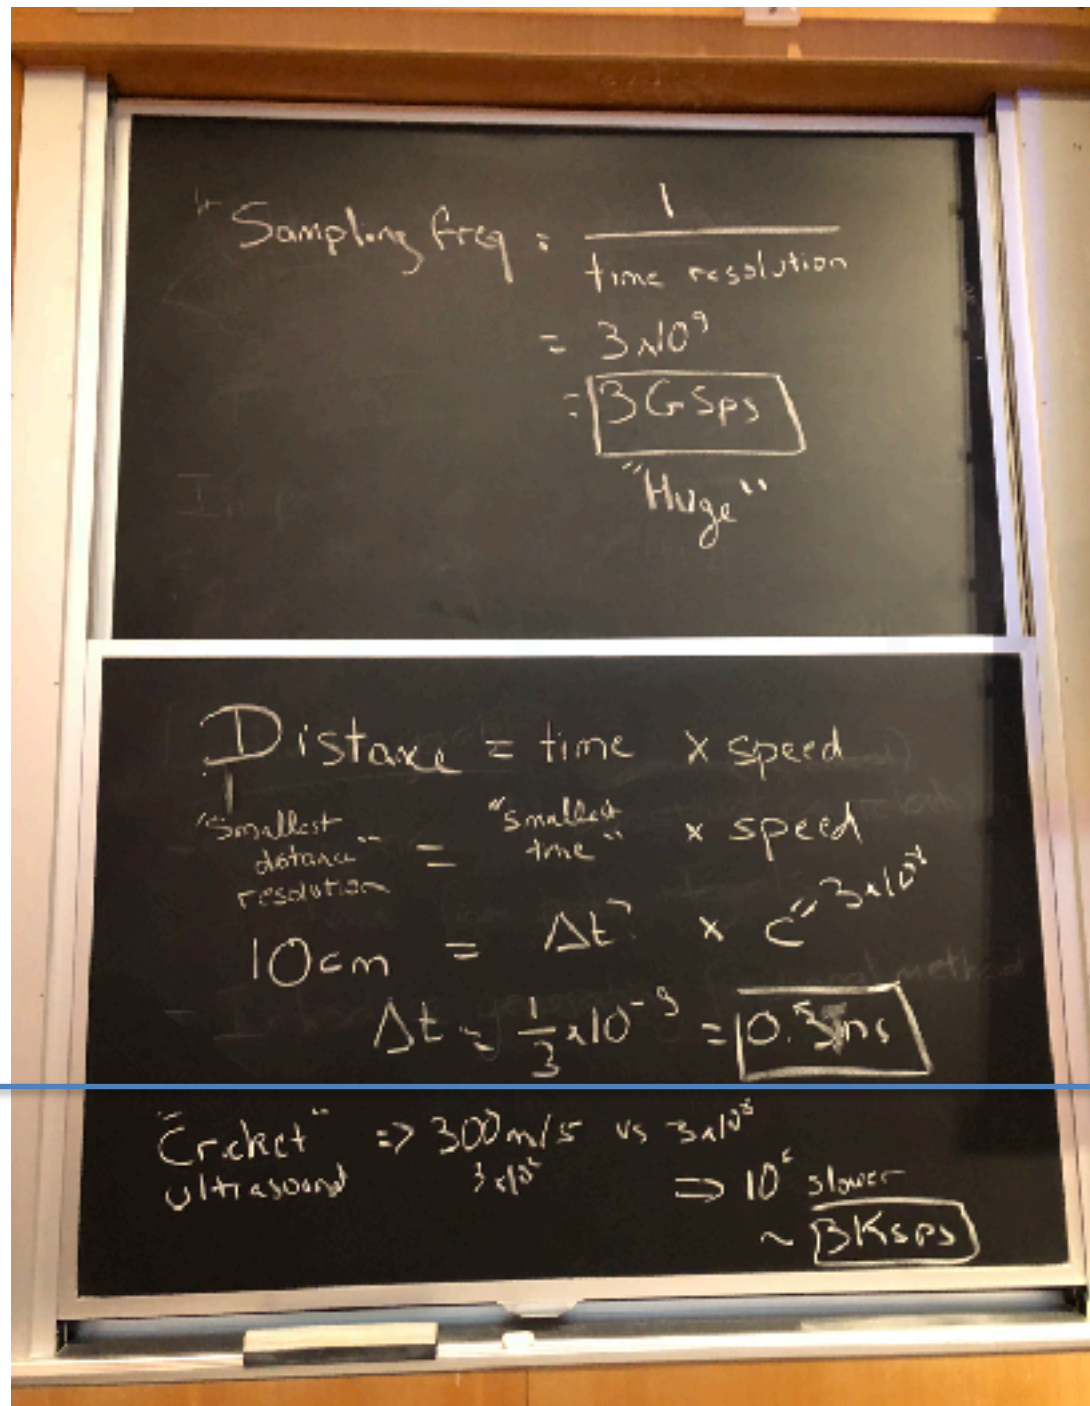 Sampling freq = 1
time resolution
= 3x10⁹
= 3GSps
"Huge"
In
Distance = time x speed
"Smallest distance" resolution = "smallest time" x speed
10cm = Δt? x c = 3x10⁸
Δt = 1/3 x10⁻⁹ = 0.3ns
"Cricket" => 300m/s vs 3x10⁸
ultrasound 3x10²
=> 10⁶ slower
~ 3Ksps